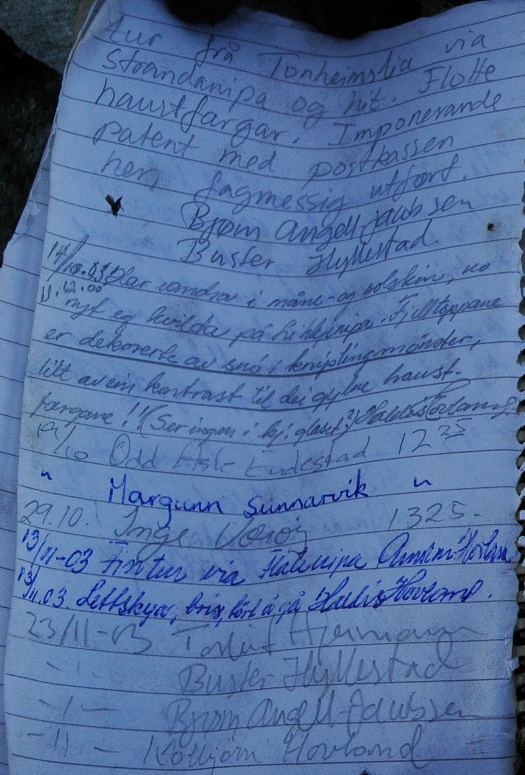 tur frå Tonheimslia via
Strandanipa og hit. Flotte
haustfargar. Imponerande
patent med postkassen
her, fagmessig utført.
Bjørn Angell-Jacobsen
Buster Hyllestad.
17/10-03 Har vandra i måne- og solskin, no
kl. 12.00 nyt eg kvilda på Fjelltoppane
er dekorerte av snø i kniplingmønster,
litt av ein kontrast til dei gylne haust-
fargane!! (Ser ingen i kj. glaset?) Haldis Hovland
19/10 Odd Endestad 12 35
" Margunn Sunnarvik "
29.10. Inge 1325.
13/11-03 Fin tur via Hovland
13/11.03. Lettskya, bris, fört å gå Haldis Hovland.
23/11-03
- " - Buster Hyllestad
- " - Bjørn Angell-Jacobsen
- " - Kolbjørn Hovland